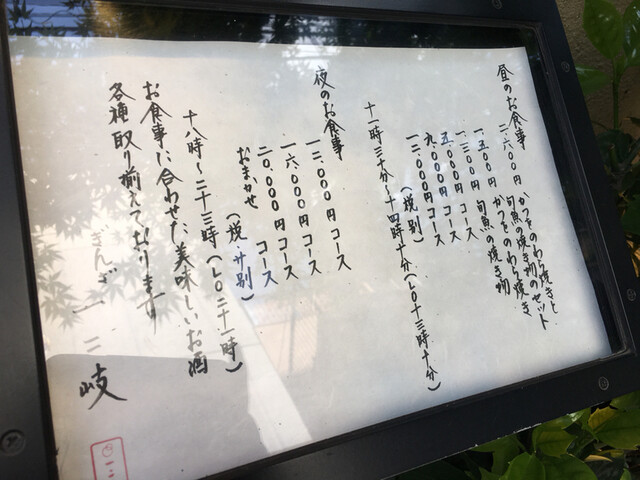 昼のお食事
二、六〇〇円 かつをのわら焼きと
旬魚の焼き物のセット
一、五〇〇円 かつをのわら焼き
一、三〇〇円 旬魚の焼き物
五、〇〇〇円コース
九、〇〇〇円コース
一二、〇〇〇円コース
(税別)
十一時三十分〜十四時十分(LO十三時十分)
夜のお食事
一二、〇〇〇円コース
一六、〇〇〇円コース
二〇、〇〇〇円コース
おまかせ
(税・サ別)
十八時〜二十三時(LO二十一時)
お食事に合わせた美味しいお酒
各種取り揃えております
ぎんざ 一二岐